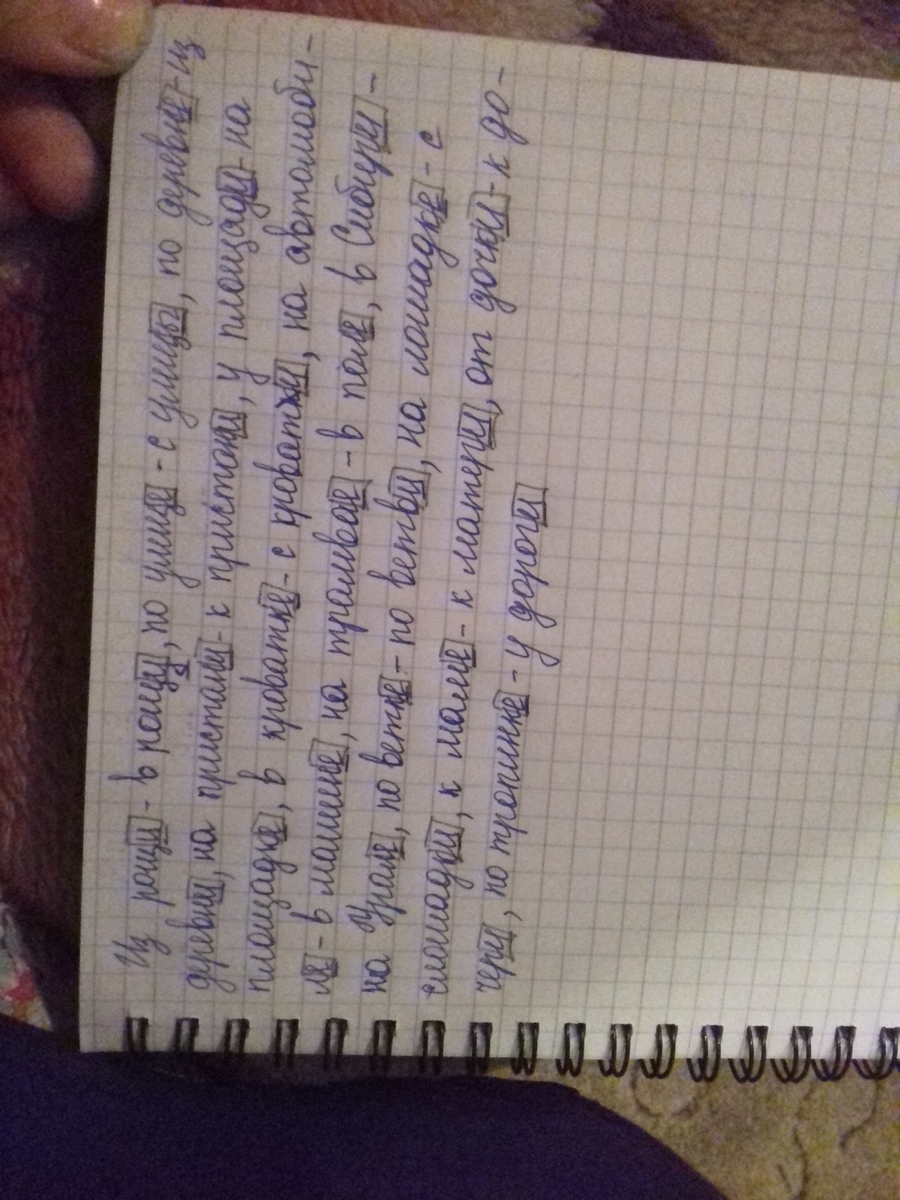 Из рощи - в рощу, по улице - с улицы, по деревне - из
деревни, на пристани - к пристани, у площади - на
площадке, в кроватке - с кроватки, на автомоби-
ле - в машине, на трамвае - в поле, в Сибири -
на Урале, по ветке - по ветви, на лошадке - с
слошадки, к маме - к матери, от дочки - к до-
чери, по тропинке - у дороги